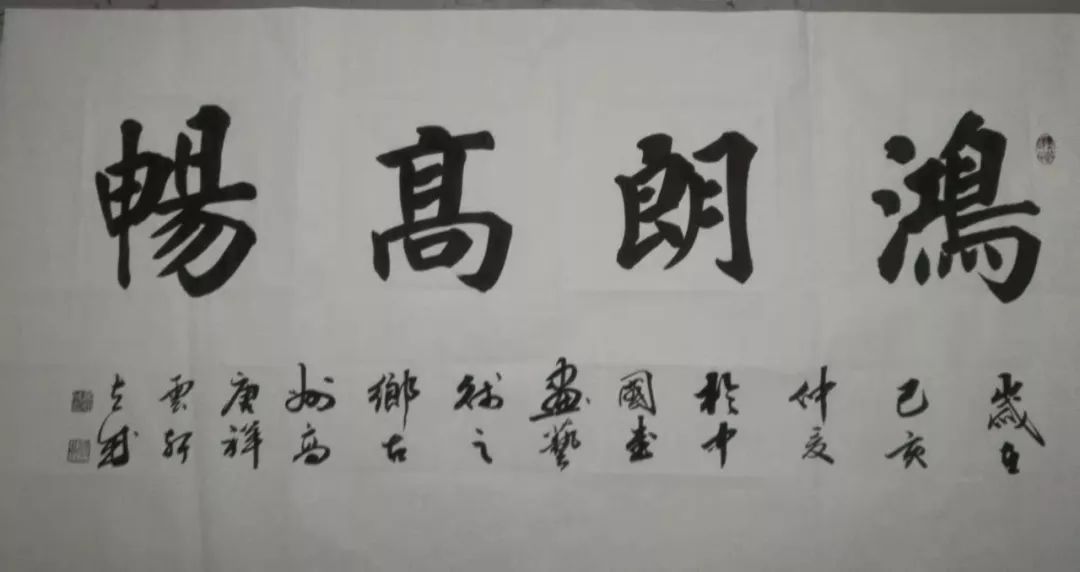 鴻朗髙暢
歲在
己亥
仲夏
於中
國書
畫藝
術之
鄉古
州高
唐祥
雲軒